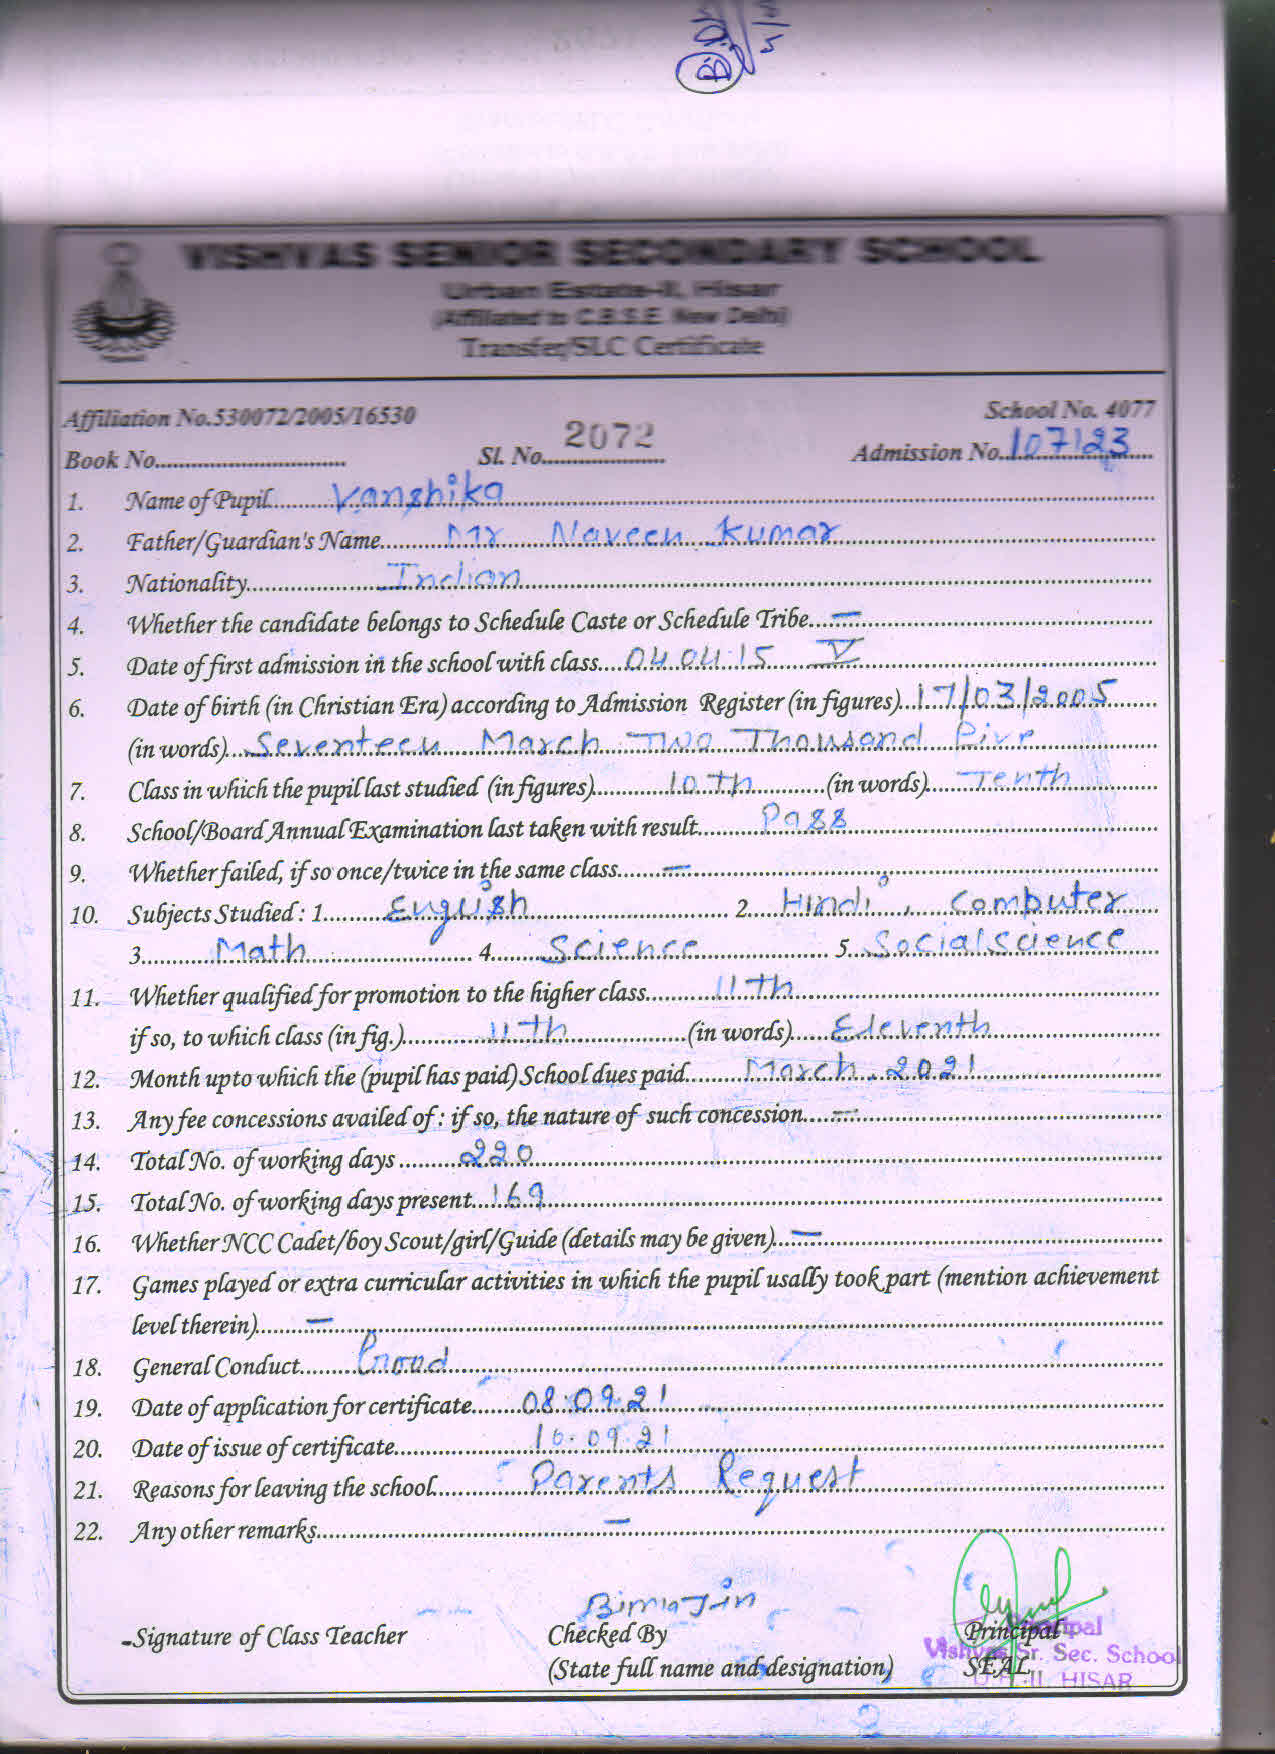 VISHVAS SENIOR SECONDARY SCHOOL
Urban Estate-II, Hisar
(Affiliated to C.B.S.E. New Delhi)
Transfer/SLC Certificate
Affiliation No.530072/2005/16530 School No. 4077
Book No. Sl. No. 2072 Admission No. 107123
1. Name of Pupil Vanshika
2. Father/Guardian's Name Mr Naveen Kumar
3. Nationality Indian
4. Whether the candidate belongs to Schedule Caste or Schedule Tribe —
5. Date of first admission in the school with class 04.04.15 V
6. Date of birth (in Christian Era) according to Admission Register (in figures) 17/03/2005
(in words) Seventeen March Two Thousand Five
7. Class in which the pupil last studied (in figures) 10th (in words) Tenth
8. School/Board Annual Examination last taken with result Pass
9. Whether failed, if so once/twice in the same class —
10. Subjects Studied : 1. English 2. Hindi, Computer
3. Math 4. Science 5. Social science
11. Whether qualified for promotion to the higher class 11th
if so, to which class (in fig.) 11th (in words) Eleventh
12. Month upto which the (pupil has paid) School dues paid March, 2021
13. Any fee concessions availed of : if so, the nature of such concession —
14. Total No. of working days 220
15. Total No. of working days present 169
16. Whether NCC Cadet/boy Scout/girl/Guide (details may be given) —
17. Games played or extra curricular activities in which the pupil usally took part (mention achievement
level therein) —
18. General Conduct Good
19. Date of application for certificate 08.09.21
20. Date of issue of certificate 09.21
21. Reasons for leaving the school Parents Request
22. Any other remarks —
Signature of Class Teacher Checked By Principal
(State full name and designation) SEAL
Principal
Vishvas Sr. Sec. School
HISAR